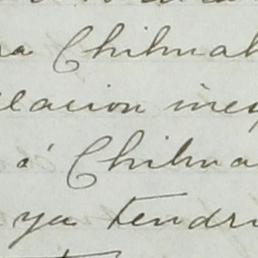 ra Chihuah
elacion ines
á Chihua
ya tendr